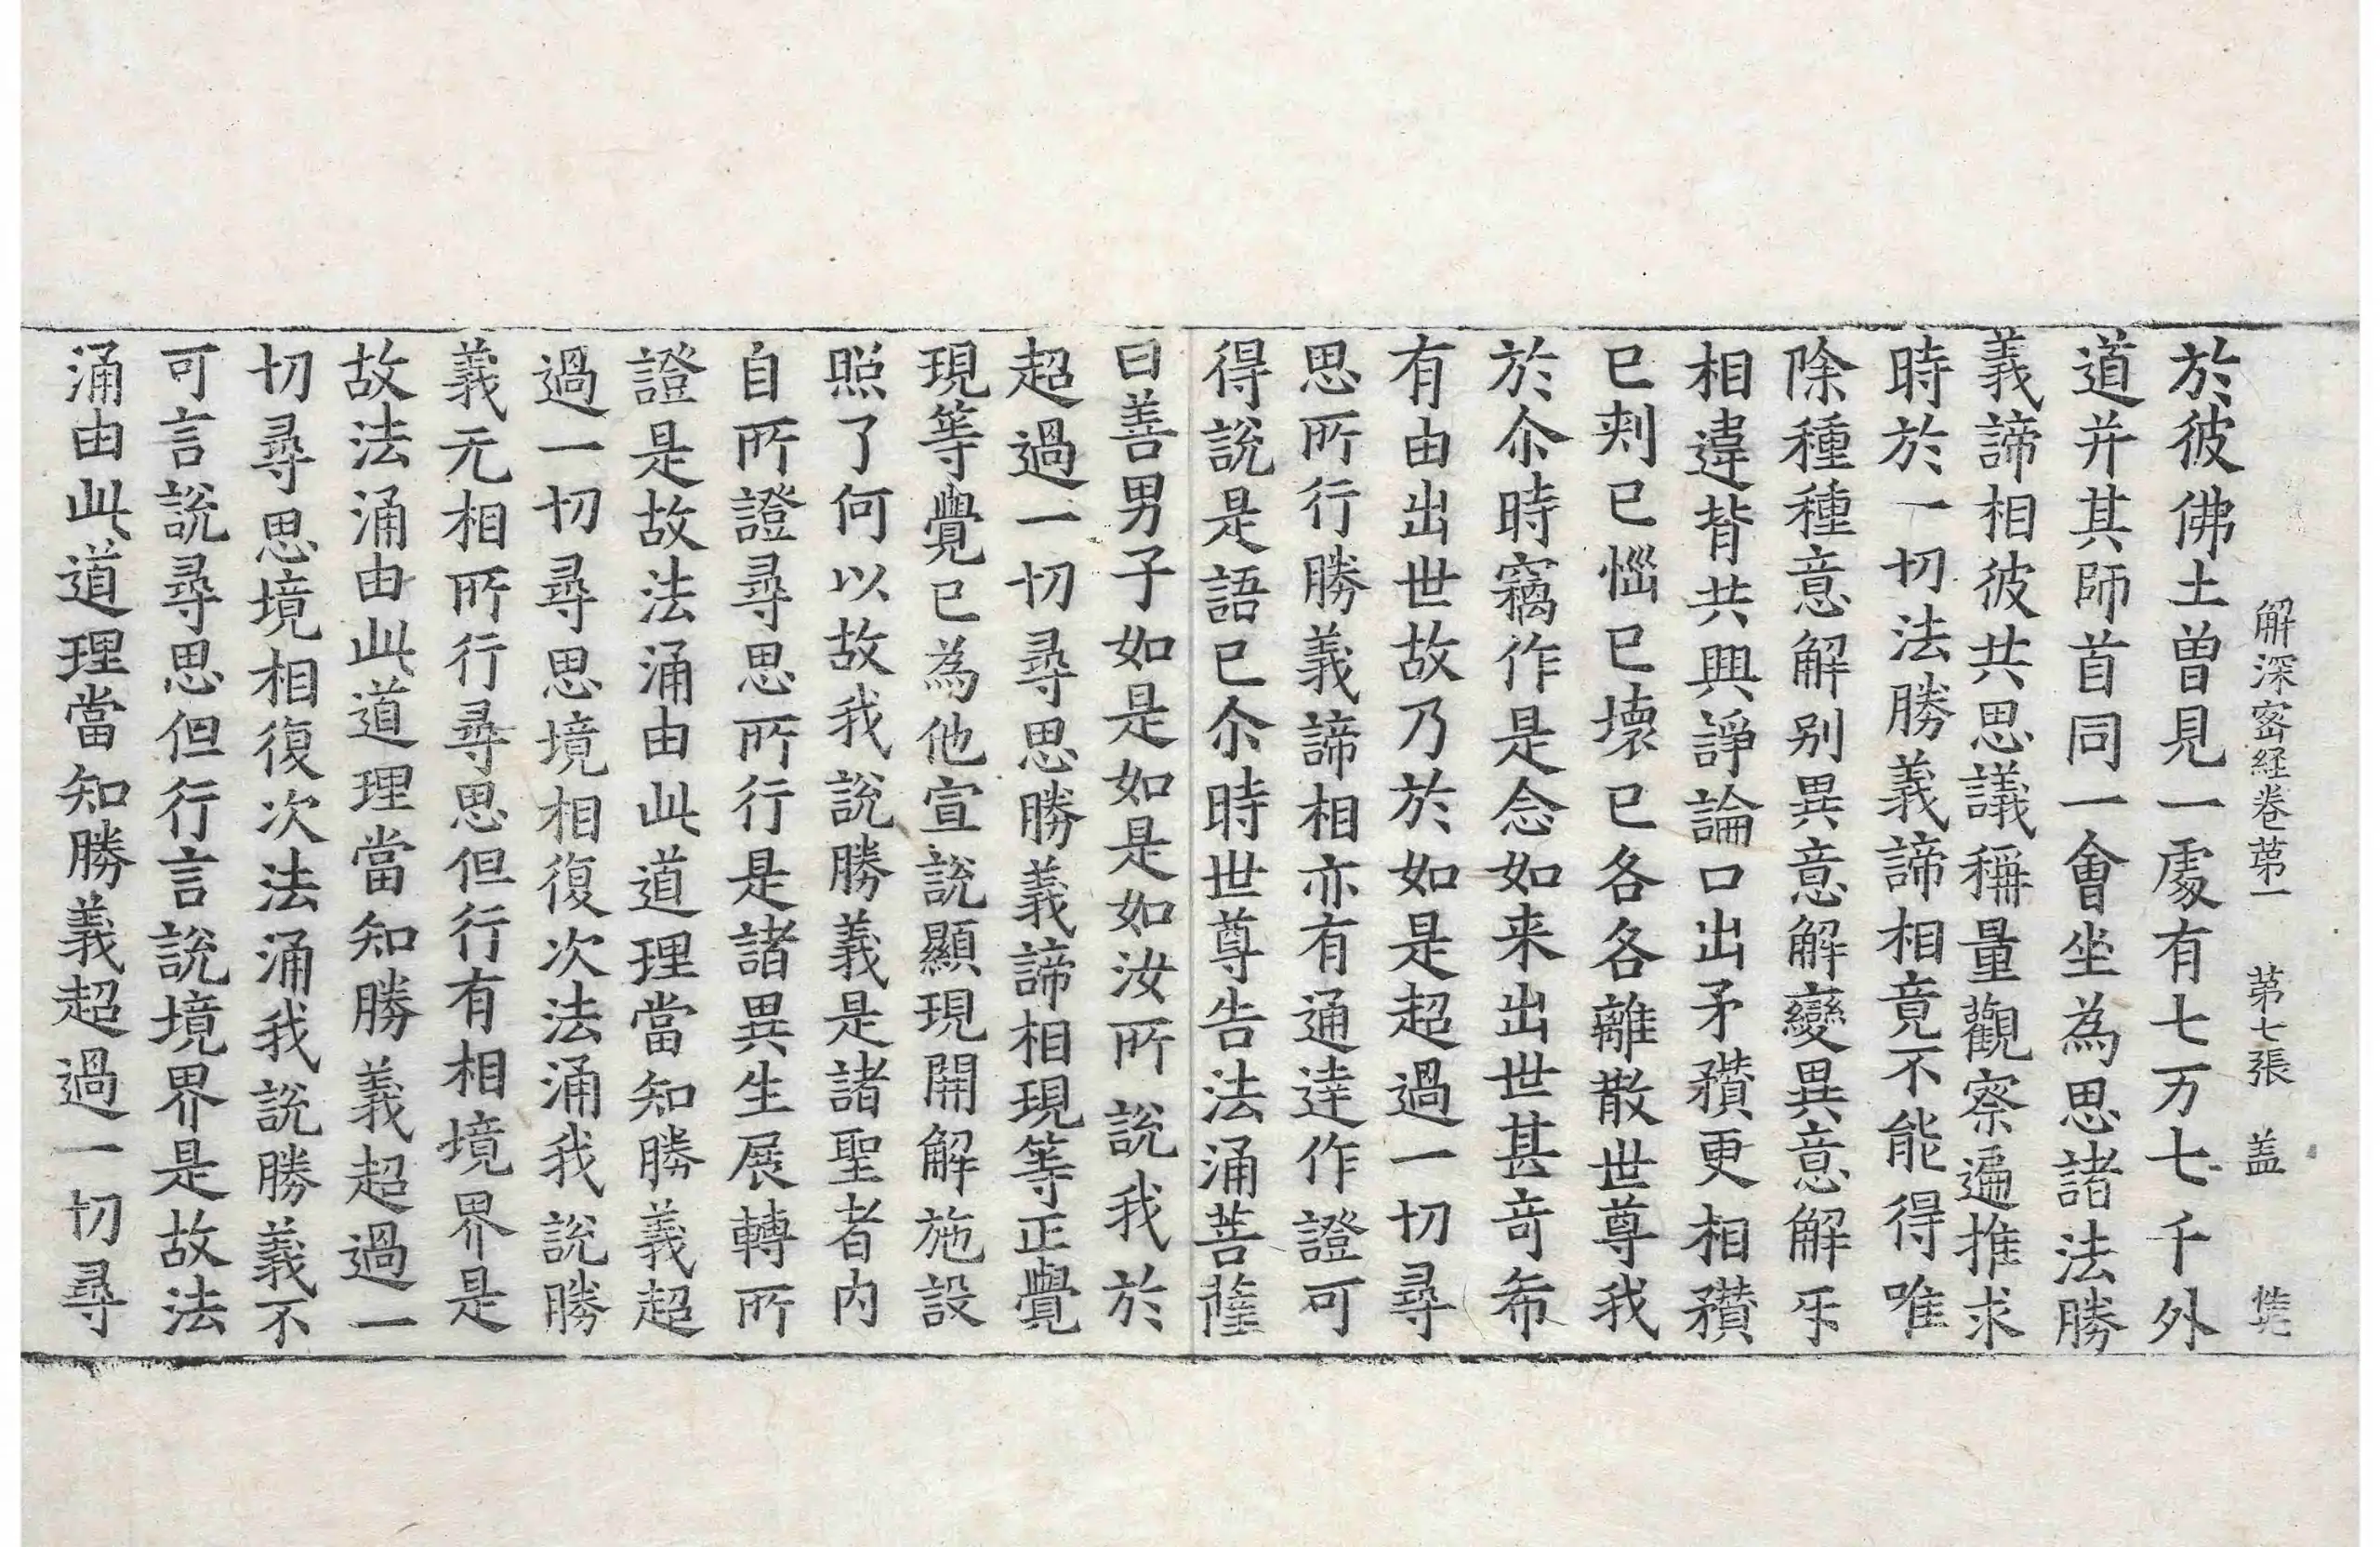 解深密経卷苐一　苐七張　盖
於彼佛土曽見一處有七万七千外
道并其師首同一會坐為思諸法勝
義諦相彼共思議稱量觀察遍推求
時於一切法勝義諦相竟不能得唯
除種種意解别異意解變異意解𠄔
相違背共興諍論口出矛穳更相穳
已刾已惱已壊已各各離散世尊我
於尒時竊作是念如来出世甚奇希
有由出世故乃於如是超過一切尋
思所行勝義諦相亦有通達作證可
得說是語已尒時世尊告法涌菩薩
曰善男子如是如是如汝所說我於
超過一切尋思勝義諦相現等正覺
現等覺已為他宣說顯現開解施設
照了何以故我說勝義是諸聖者内
自所證尋思所行是諸異生展轉所
證是故法涌由此道理當知勝義超
過一切尋思境相復次法涌我說勝
義无相所行尋思但行有相境界是
故法涌由此道理當知勝義超過一
切尋思境相復次法涌我說勝義不
可言說尋思但行言說境界是故法
涌由此道理當知勝義超過一切尋